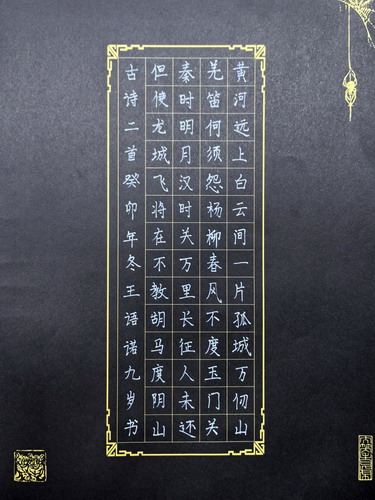 黄河远上白云间一片孤城万仞山
羌笛何须怨杨柳春风不度玉门关
秦时明月汉时关万里长征人未还
但使龙城飞将在不教胡马度阴山
古诗二首癸卯年冬王语诺九岁书